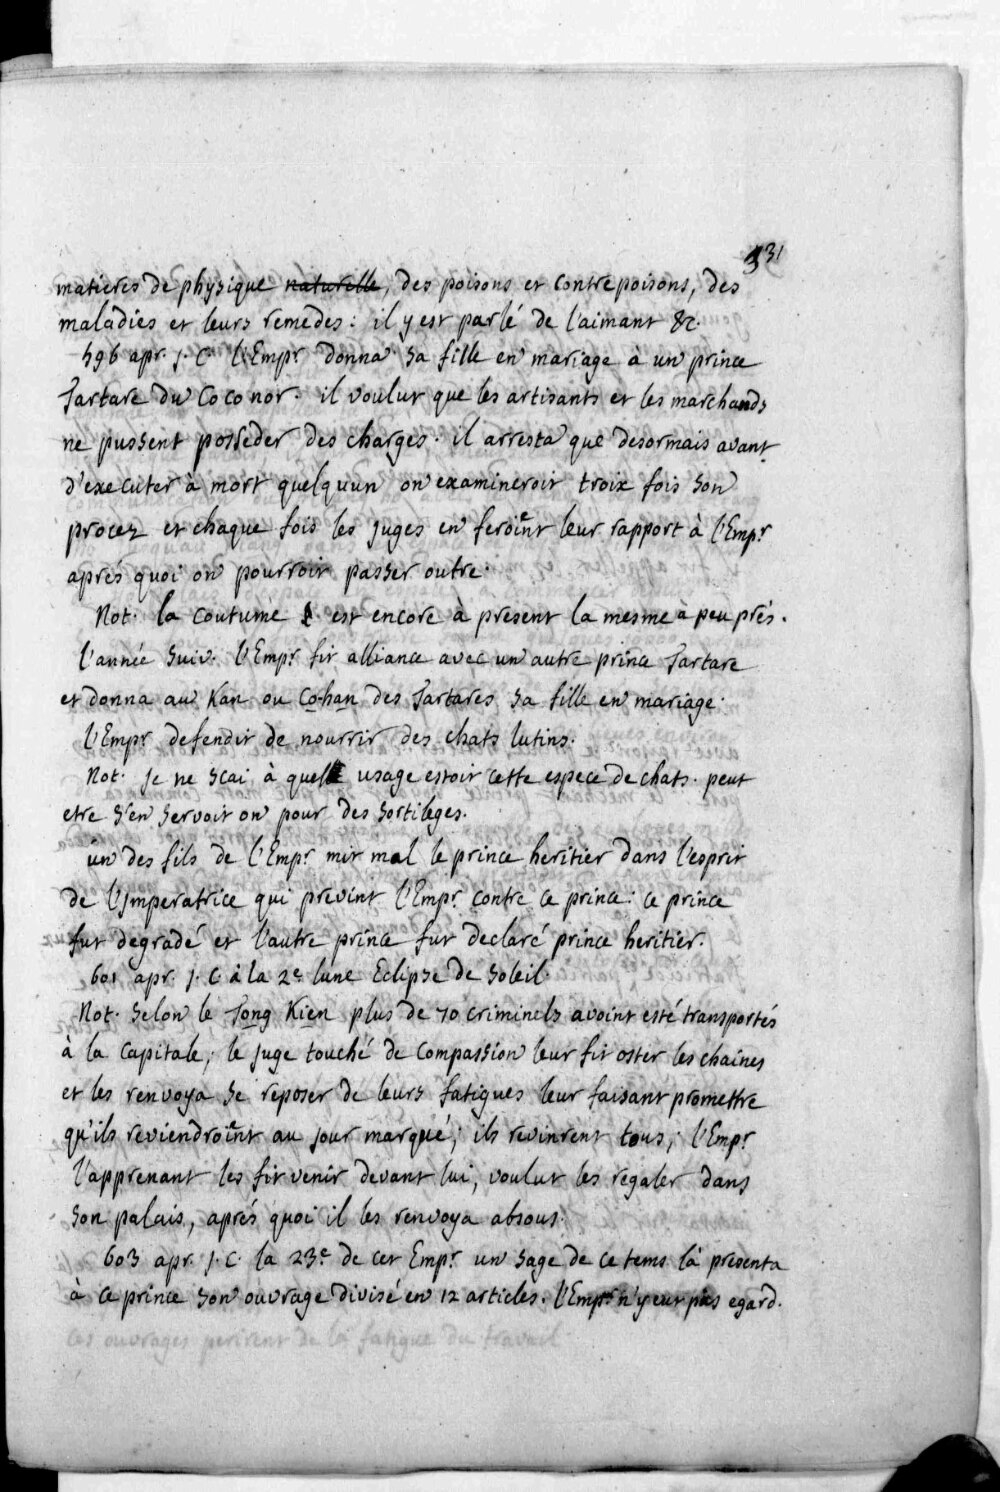 331
matieres de physique naturelle, des poisons et contrepoisons, des
maladies et leurs remedes: il y est parlé de l'aimant &c.
596 apr. J. C. l'Empr. donna sa fille en mariage à un prince
Tartare du Coconor. il voulut que les artisants et les marchands
ne pussent posseder des charges. il arresta que desormais avant
d'executer à mort quelquun on examineroit troix fois son
procez et chaque fois les juges en feroient leur rapport à l'Empr.
aprés quoi on pourroit passer outre.
Not. la coutume est encore à present la mesme à peu prés.
l'année suiv. l'Empr. fit alliance avec un autre prince Tartare
et donna au Kan ou Co-han des Tartares sa fille en mariage.
l'Empr. defendit de nourrir des chats lutins.
Not. je ne scai à quell usage estoit cette espece de chats. peut
etre s'en servoit on pour des sortileges.
un des fils de l'Empr. mit mal le prince heritier dans l'esprit
de l'Imperatrice qui prevint l'Empr. contre ce prince: ce prince
fut degradé et l'autre prince fut declaré prince heritier.
601 apr. J. C à la 2e. lune Eclipse de soleil.
Not. selon le Tong Kien plus de 70 criminels avoint esté transportés
à la capitale; le juge touché de compassion leur fit oster les chaines
et les renvoya se reposer de leurs fatigues leur faisant promettre
qu'ils reviendroient au jour marqué; ils revinrent tous; l'Empr.
l'apprenant les fit venir devant lui, voulut les regaler dans
son palais, aprés quoi il les renvoya absous.
603 apr. J. C. la 23e. de cet Empr. un sage de ce tems là presenta
à ce prince son ouvrage divisé en 12 articles. l'Empr. n'y eut pas egard.
les ouvrages perirent de la fatigue du travail